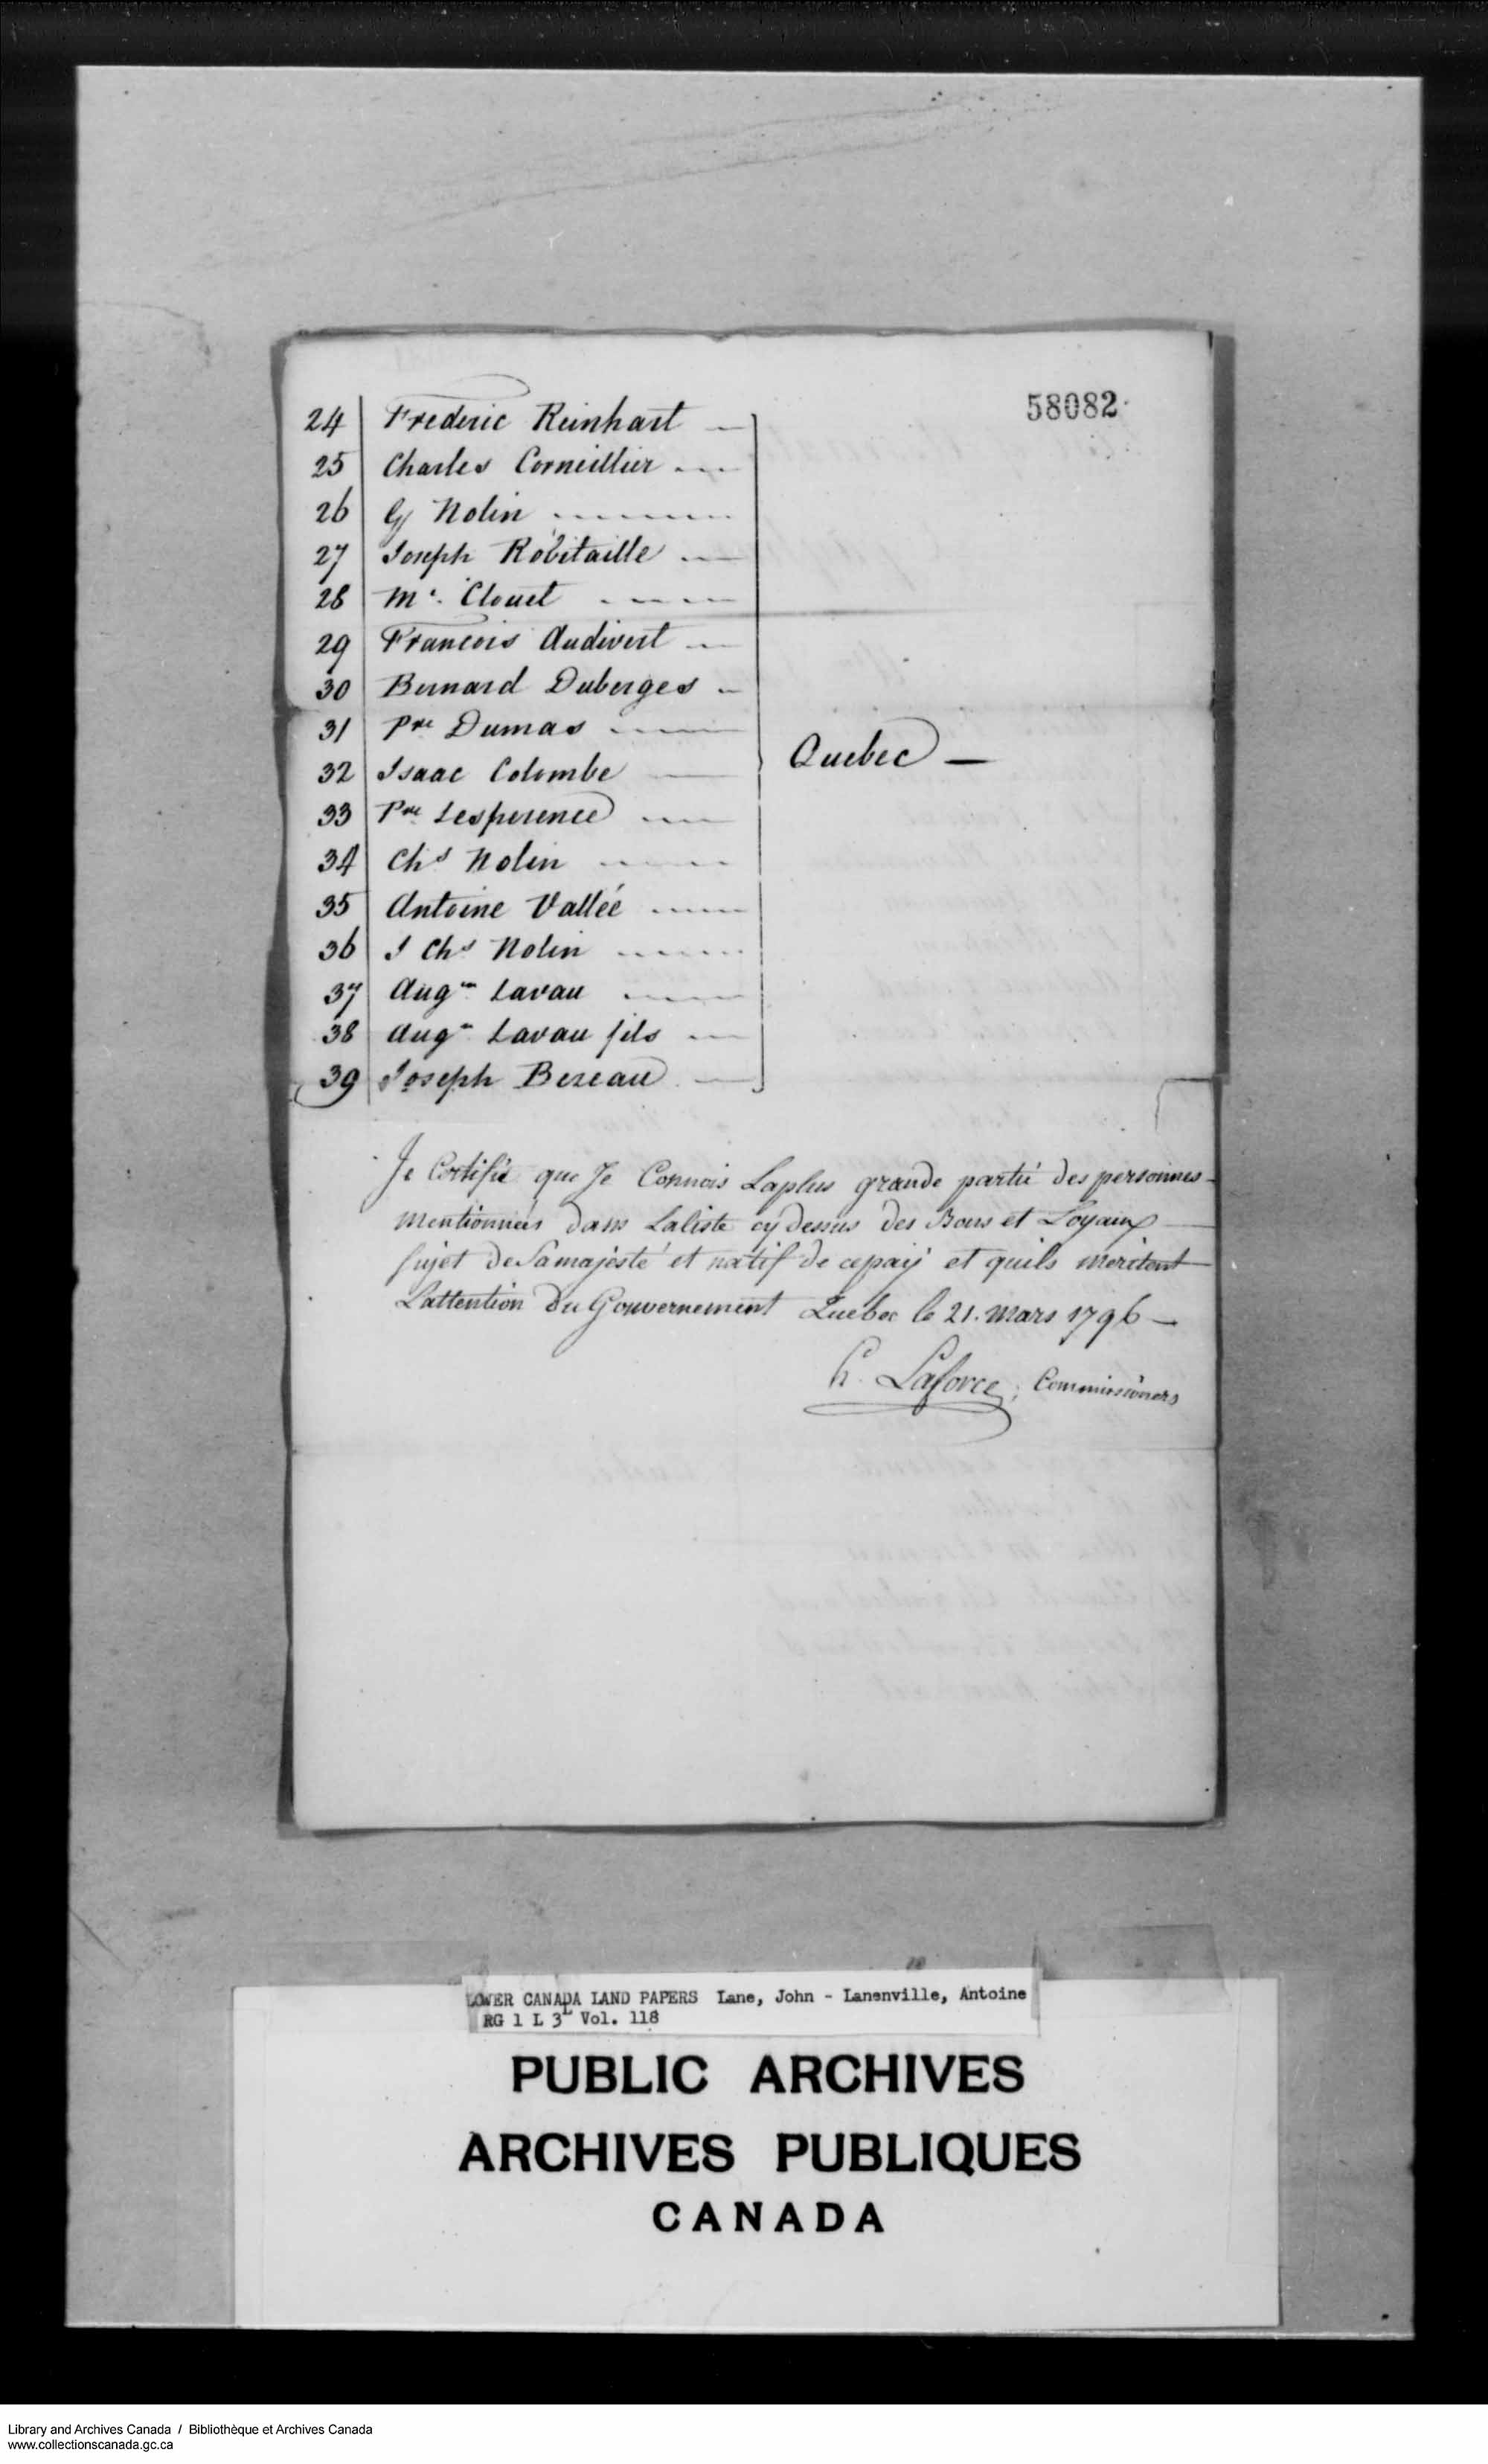 58082
24 Frederic Reinhart
25 Charles Corneillier
26 G Nolin
27 Joseph Robitaille
28 Mr. Clouet
29 Francois Audivert
30 Bernard Duberges
31 Pre Dumas
Quebec —
32 Isaac Colombe
33 Pre Lesperence
34 Chs Nolin
35 Antoine Vallée
36 J Chs Nolin
37 Augn Lavau
38 Augn Lavau fils
39 Joseph Bezeau
Je Certifie que Je Connois Laplus grande partié des personnes
mentionnées dans Laliste cy dessus des Bons et Loyaux
sujet de Samajésté et natif de cepaÿ et quils méritent
Lattention Du Gouvernement Quebec le 21. Mars 1796 —
H. Laforce, Commissioners
LOWER CANADA LAND PAPERS Lane, John - Lanenville, Antoine
RG 1 L 3L Vol. 118
PUBLIC ARCHIVES
ARCHIVES PUBLIQUES
CANADA
Library and Archives Canada / Bibliothèque et Archives Canada
www.collectionscanada.gc.ca